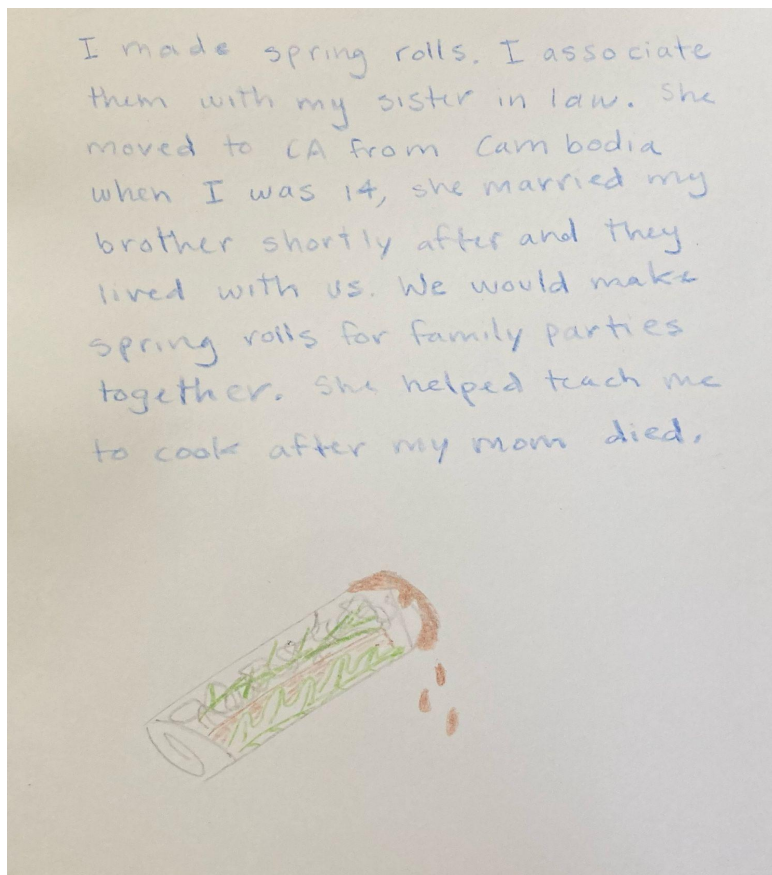 I made spring rolls. I associate
them with my sister in law. She
moved to CA from Cambodia
when I was 14, she married my
brother shortly after and they
lived with us. We would make
spring rolls for family parties
together. She helped teach me
to cook after my mom died.